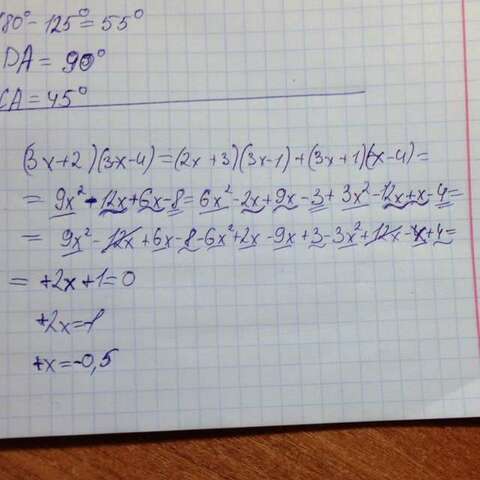 180° - 125° = 55°
DA = 90°
CA = 45°
(3x+2)(3x-4) = (2x+3)(3x-1)+(3x+1)(x-4) =
= 9x² - 12x + 6x - 8 = 6x² - 2x + 9x - 3 + 3x² - 12x + x - 4 =
= 9x² - 12x + 6x - 8 - 6x² + 2x - 9x + 3 - 3x² + 12x - x + 4 =
= +2x + 1 = 0
+2x = -1
+x = -0,5